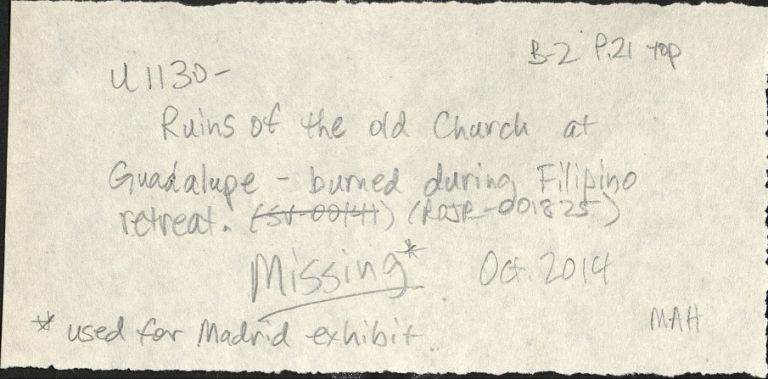 B-2 P.21 top
U1130-
Ruins of the old Church at
Guadalupe - burned during Filipino
retreat. (SV-00141) (ROJR-001825)
Missing* Oct. 2014
MAH
* used for Madrid exhibit